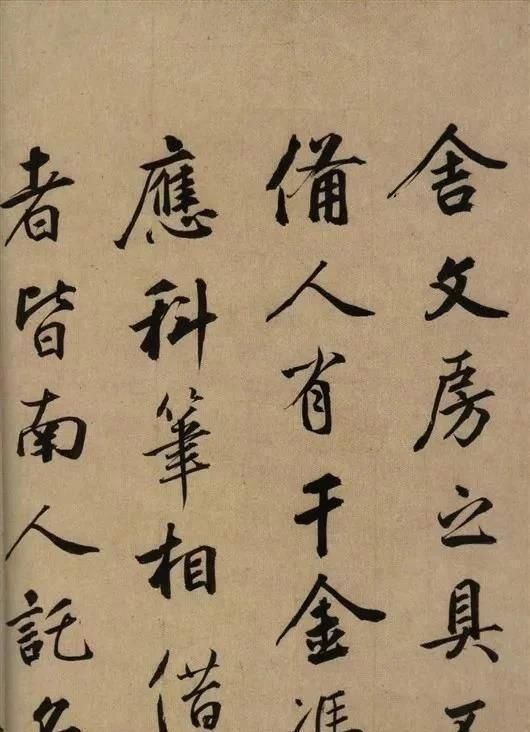 舍文房之具
備人有千金
應科筆相借
者皆南人託